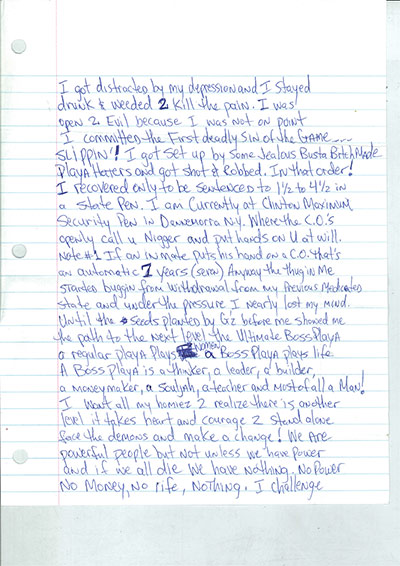 I got distracted by my depression and I stayed
drunk & weeded 2 kill the pain. I was
open 2 Evil because I was not on point
I committed the First deadly Sin of the Game....
SLippin'! I got set up by some Jealous Busta Bitch Made
Playa Haters and got shot & Robbed. In that order!
I recovered only to be sentenced to 1½ to 4½ in
a state Pen. I am Currently at Clinton Maximum
Security Pen in Dannemorra N.Y. Where the C.O.'s
openly call u Nigger and put hands on U at will.
Note #1 If an inmate puts his hand on a C.O. that's
an automatic 7 years (seven) Anyway the thug in Me
started buggin from withdrawal from my Previous Medicated
state and under the pressure I nearly lost my mind.
Until the seeds planted by G'z before me showed me
the path to the next level the Ultimate Boss Playa
a regular playa plays women a Boss Playa plays life
A Boss Playa is a thinker, a leader, a builder,
a moneymaker, a souljah, a teacher and most of all a Man!
I want all my homiez 2 realize there is another
level it takes heart and courage 2 stand alone
face the demons and make a change! We Are
powerful people but not unless we have power
and if we all die we have nothing. No Power
No Money, No life, Nothing. I challenge